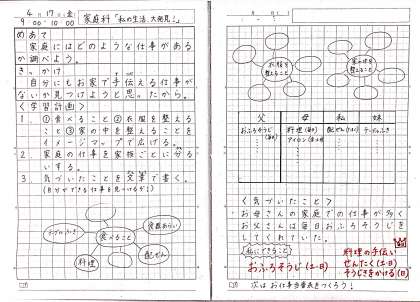 4月17日(金)
9:00〜10:00
家庭科「私の生活、大発見!」
めあて
家庭にはどのような仕事があるか調べよう。
きっかけ
自分にもお家で手伝える仕事がないか見つけようと思ったから。
〈学習計画〉
1. ①食べること②衣服を整えること③家の中を整えることをイメージマップで広げる。
2. 家庭の仕事を家族ごとに分るいする。
3. 気づいたことを文章で書く。
(自分ができる仕事を見つけるぞ!)
食べること
食器あらい
配ぜん
料理
テーブルふき
衣服を整えること
家の中を整えること
父 母 私 妹
おふろそうじ 料理(毎日) 配ぜん(土・日) テーブルふき
アイロン
〈気づいたこと〉
お母さんの家庭での仕事が多く
お父さんは毎日おふろそうじを
してくれていた。
私にできること
おふろそうじ(土・日)
料理の手伝い
せんたく(土・日)
そうじきをかける(日)
次はお仕事当番表をつくろう!